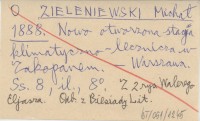 O ZIELENIEWSKI Michał
1888. Nowo otworzona stacja
klimatyczno-lecznicza w
Zakopanem. – Warszawa.
Ss. 8, il., 8°. Z 2 rys. Walerego
Eljasza. Odb. z Biesiady Lit.